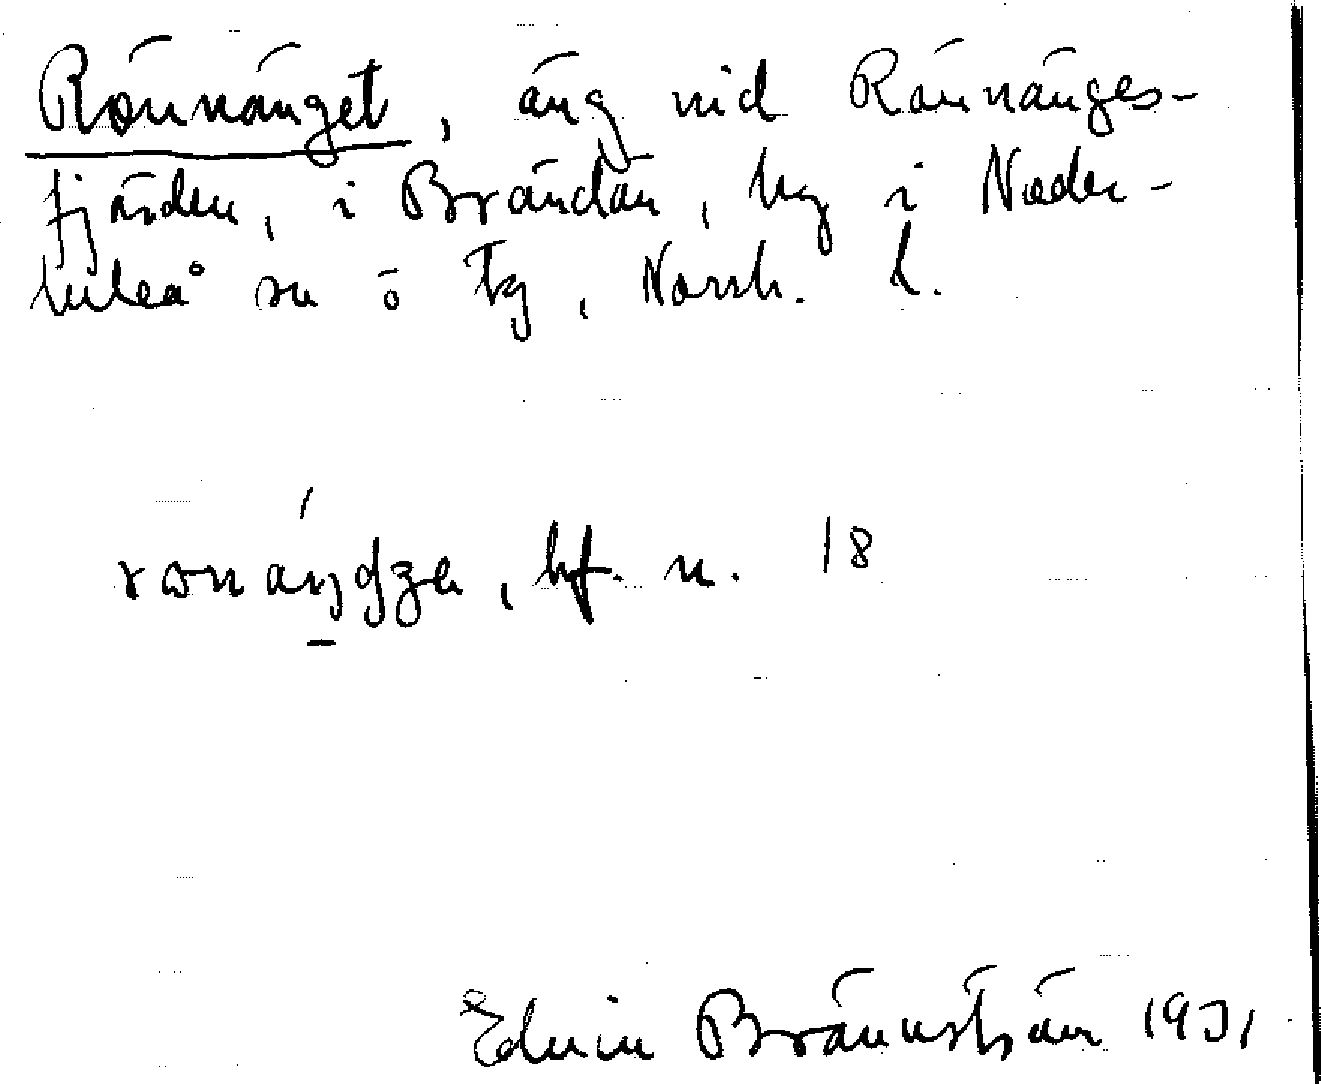 Rönnänget, äng vid Rönnänges-
fjärden, i Brändön, by i Neder-
luleå sn ö tg, Norrb. l.
hf. n. 18
Edvin Brännström 1931